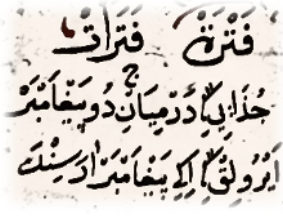 فَتْرَةْ فَتَرَاتْ
جُذَايِي دَرْمِيَانِ دُو پَيْغَامْبَرْ
اَيْرُولِقْ اِكِي پَيْغَامْبَرْ